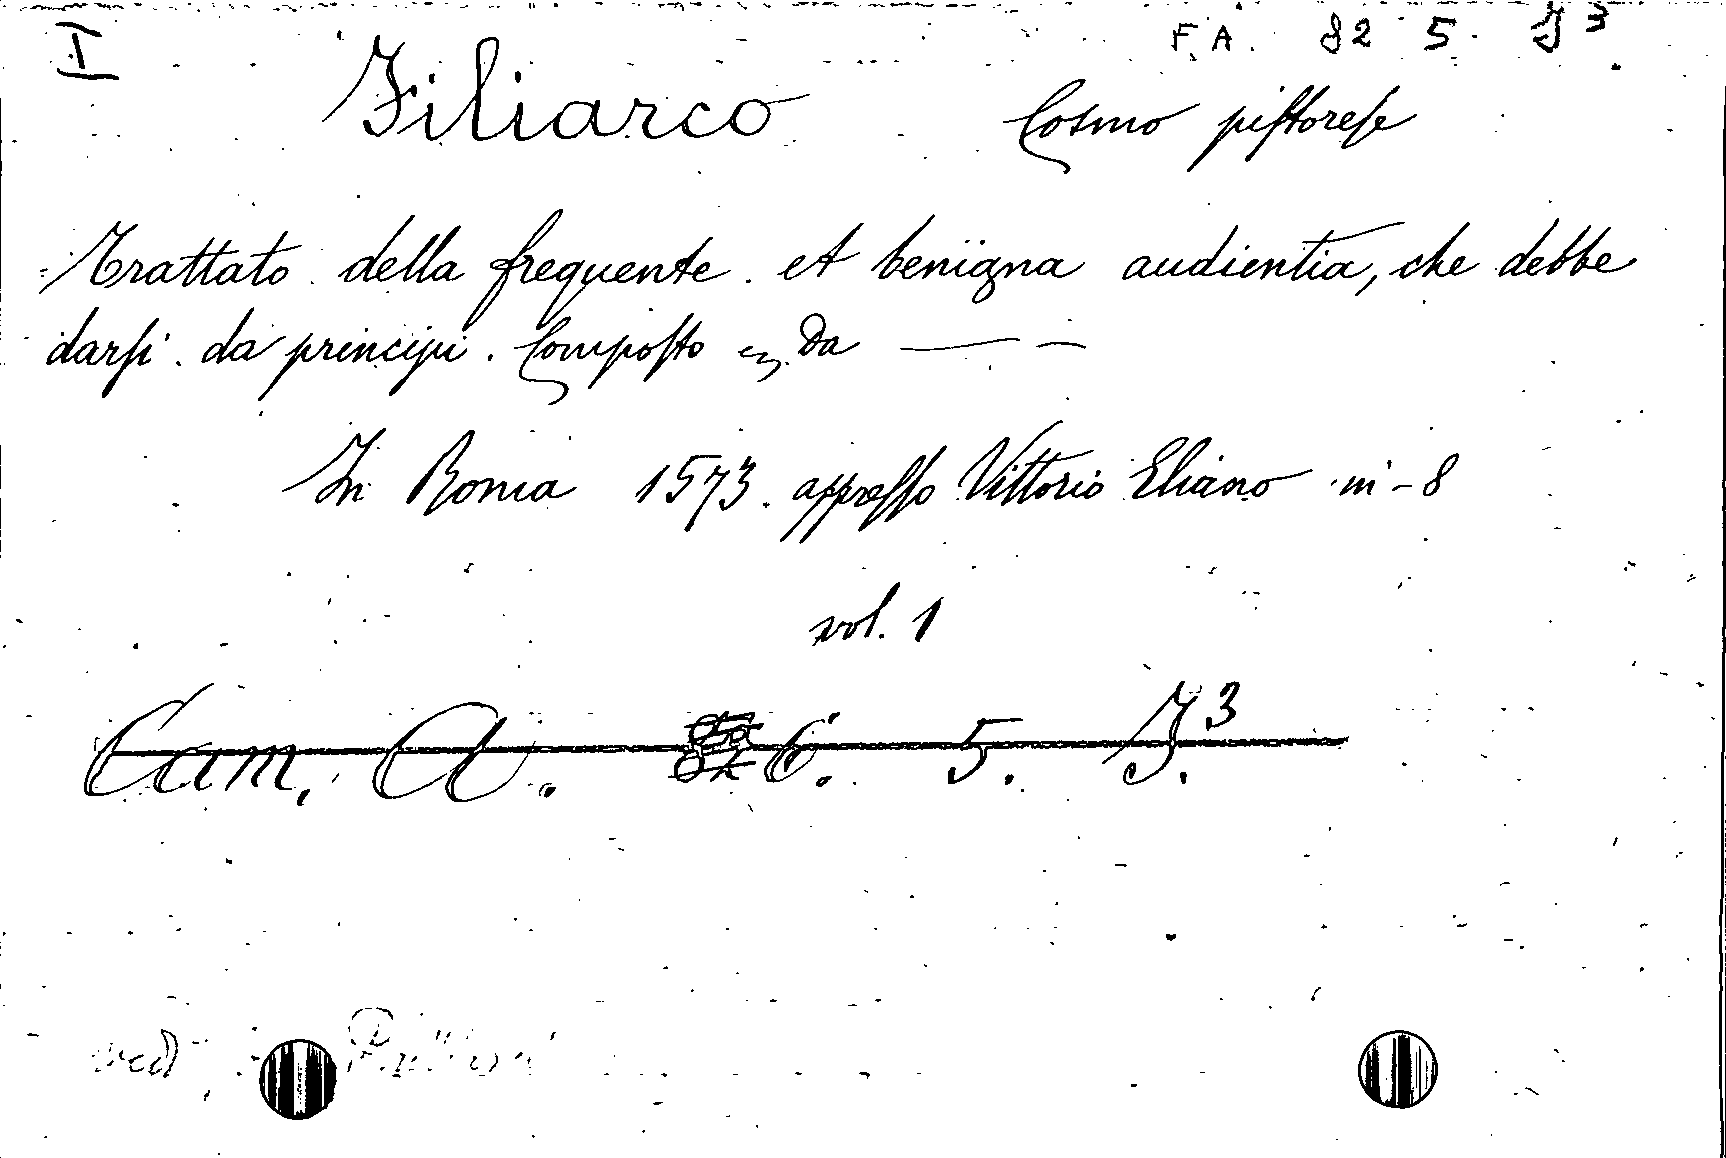 I F.A. 82 5. J 3
Filiarco Cosmo pistorese
Trattato della frequente et benigna audientia, che debbe
darsi da principi. Composto Da — —
In Roma 1573. appresso Vittorio Eliano in-8
vol. 1
Cam. A. 6. 5. J. 3